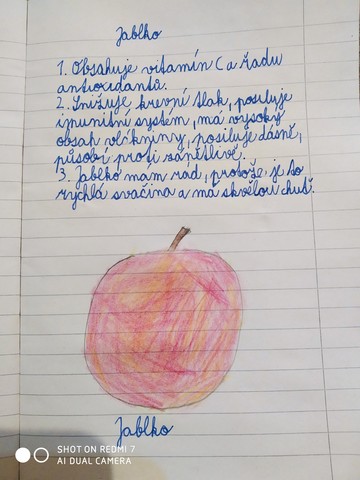 Jablko
1. Obsahuje vitamín C a řadu
antioxidantů.
2. Snižuje krevní tlak, posiluje
imunitní systém, má vysoký
obsah vlákniny, posiluje dásně,
působí proti zánětlivě.
3. Jablko mám rád, protože je to
rychlá svačina a má skvělou chuť.
Jablko
SHOT ON REDMI 7
AI DUAL CAMERA